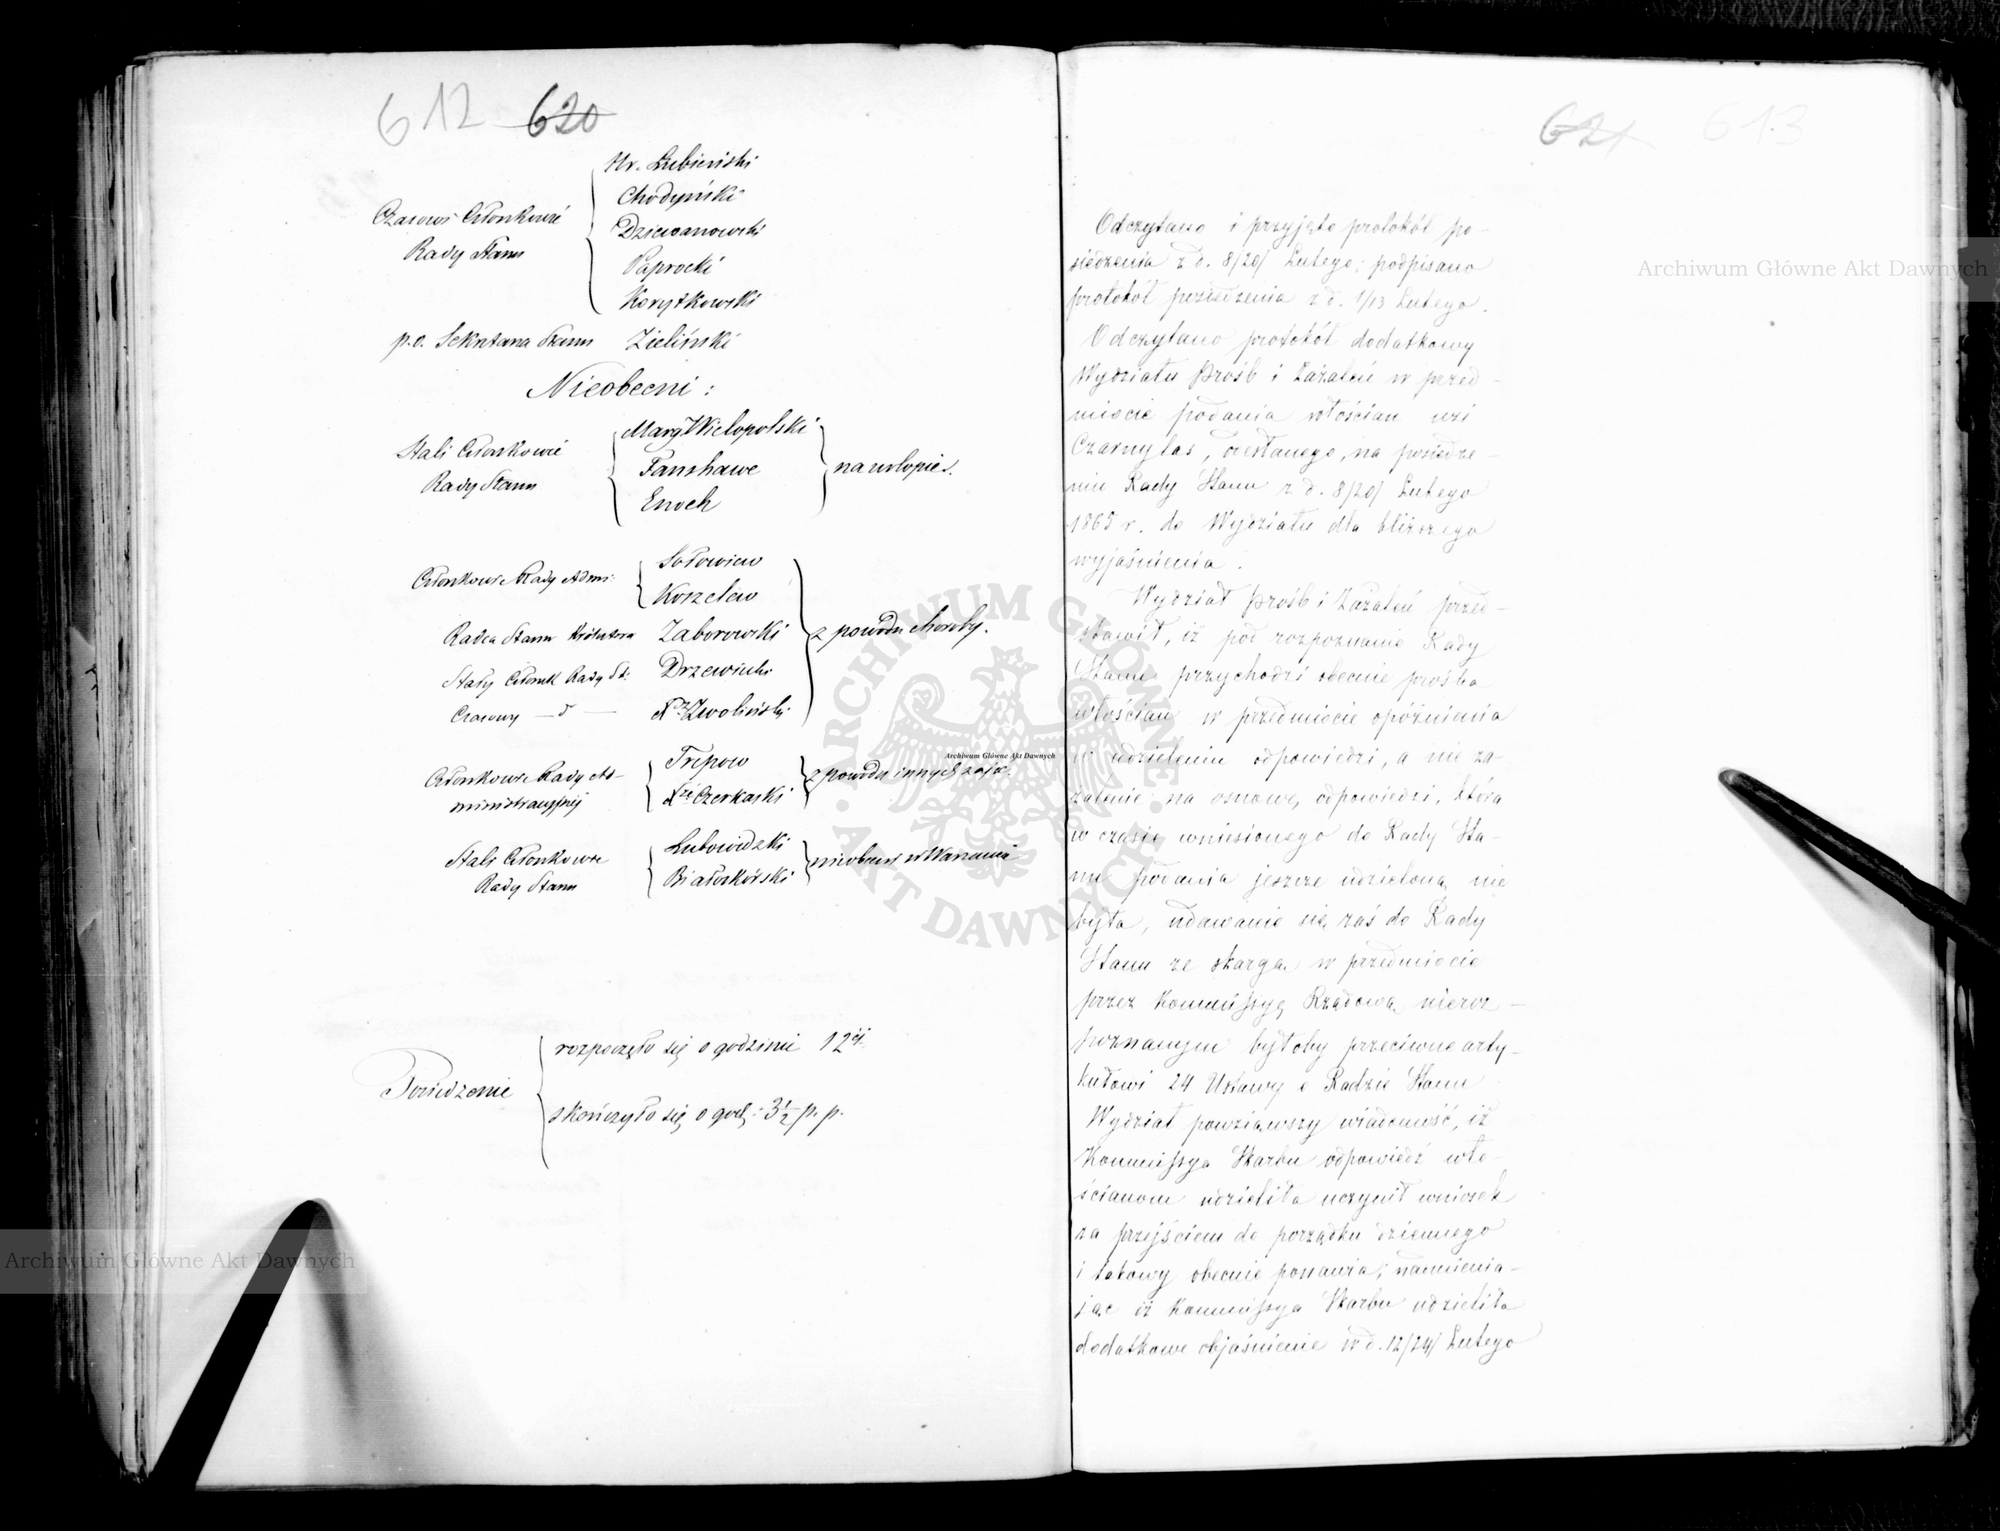 612 620
Czasowi Członkowie
Rady Stanu
Hr. Łubieński
Chodyński
Dziewanowski
Paprocki
Korytkowski
p.o. Sekretarza Stanu Zieliński
Nieobecni:
Stali Członkowie
Rady Stanu
Marg Wielopolski
Fanshawe
Enoch
na urlopie.
Członkowie Rady Admi:
Sołowiew
Koszelew
Radca Stanu Zaborowski
Stały Członek Rady St: Drzewiecki
Czasowy — d — Zwoliński
z powodu choroby.
Członkowie Rady Ad-
ministracyjnej
Trepow
Czerkaski
z powodu innych zajęć.
Stali Członkowie
Rady Stanu
Lubowidzki
Białoskórski
nieobecni w Warszawie
Posiedzenie
rozpoczęło się o godzinie 12ej
skończyło się o godz: 3½ p. p.
621 613
Odczytano i przyjęto protokół po-
siedzenia z d. 8/20/ Lutego; podpisano
protokół posiedzenia z d. 1/13 Lutego.
Odczytano protokół dodatkowy
Wydziału Próśb i Zażaleń w przed-
miocie podania włościan wsi
Czarnylas, odesłanego, na posiedze-
niu Rady Stanu z d. 8/20/ Lutego
1865 r. do Wydziału dla bliższego
wyjaśnienia.
Wydział Próśb i Zażaleń przed-
stawił, iż pod rozpoznanie Rady
Stanu przychodzi obecnie prośba
włościan w przedmiocie opóźnienia
w udzieleniu odpowiedzi, a nie za-
żalenie na osnowę odpowiedzi, która
w czasie wniesionego do Rady Sta-
nu podania jeszcze udzieloną nie
była, udawanie się zaś do Rady
Stanu ze skargą w przedmiocie
przez Kommissyę Rządową nieroz-
poznanym byłoby przeciwne arty-
kułowi 24 Ustawy o Radzie Stanu
Wydział powziąwszy wiadomość, iż
Kommissya Skarbu odpowiedź wło-
ścianom udzieliła uczynił wniosek
za przejściem do porządku dziennego
i takowy obecnie ponawia, namienia-
jąc iż Kommissya Skarbu udzieliła
dodatkowe objaśnienie w d. 12/24/ Lutego
Archiwum Główne Akt Dawnych
Archiwum Główne Akt Dawnych
Archiwum Główne Akt Dawnych
ARCHIWUM GŁÓWNE AKT DAWNYCH